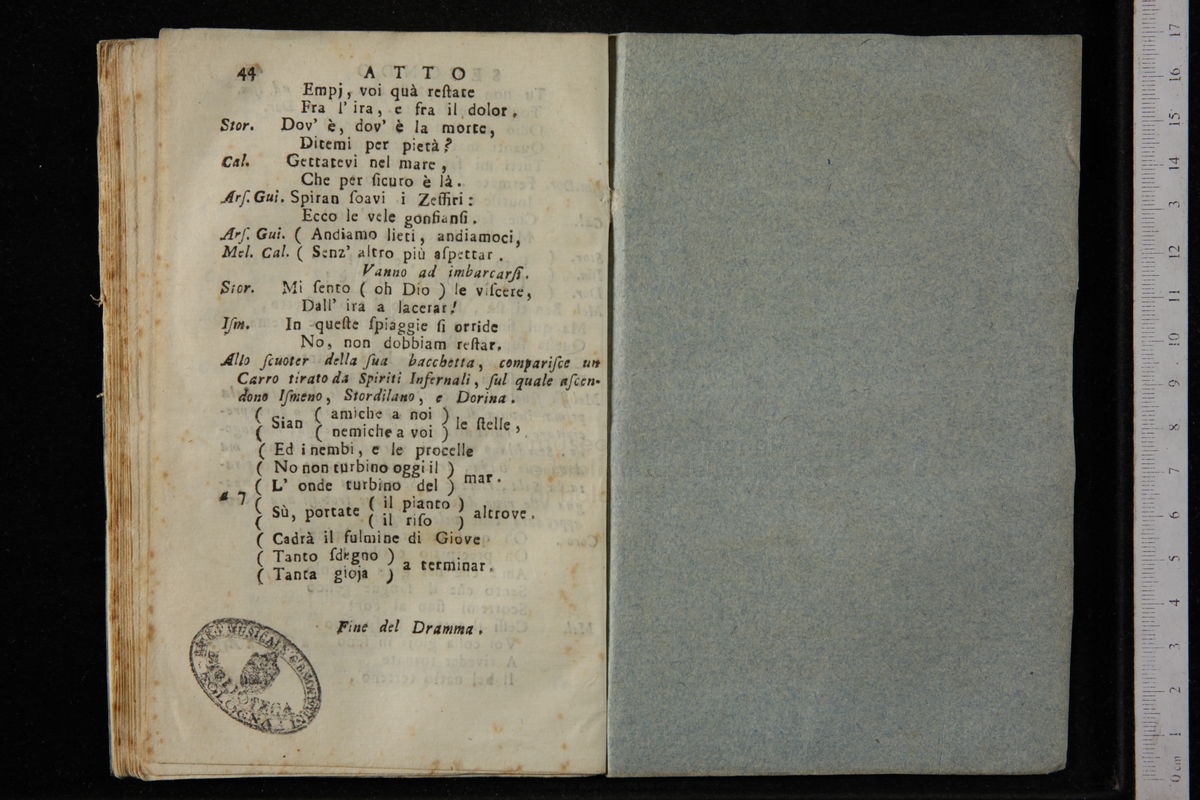 44 ATTO
Empj, voi quà reſtate
Fra l' ira, e fra il dolor.
Stor. Dov' è, dov' è la morte,
Ditemi per pietà?
Cal. Gettatevi nel mare,
Che per ſicuro è là.
Arſ. Gui. Spiran ſoavi i Zeffiri:
Ecco le vele gonfianſi.
Arſ. Gui. ( Andiamo lieti, andiamoci,
Mel. Cal. ( Senz' altro più aſpettar.
Vanno ad imbarcarſi.
Stor. Mi ſento ( oh Dio ) le viſcere,
Dall' ira a lacerar!
Iſm. In queſte ſpiaggie sì orride
No, non dobbiam reſtar.
Allo ſcuoter della ſua bacchetta, compariſce un
Carro tirato da Spiriti Infernali, ſul quale aſcen-
dono Iſmeno, Stordilano, e Dorina.
( Sian ( amiche a noi ) le ſtelle,
( ( nemiche a voi )
( Ed i nembi, e le procelle
( No non turbino oggi il ) mar.
( L' onde turbino del )
a 7 ( Sù, portate ( il pianto ) altrove.
( ( il riſo )
( Cadrà il fulmine di Giove
( Tanto ſdegno ) a terminar.
( Tanta gioja )
Fine del Dramma.
BIBLIOTECA
BOLOGNA
0 cm 1 2 3 4 5 6 7 8 9 10 11 12 13 14 15 16 17